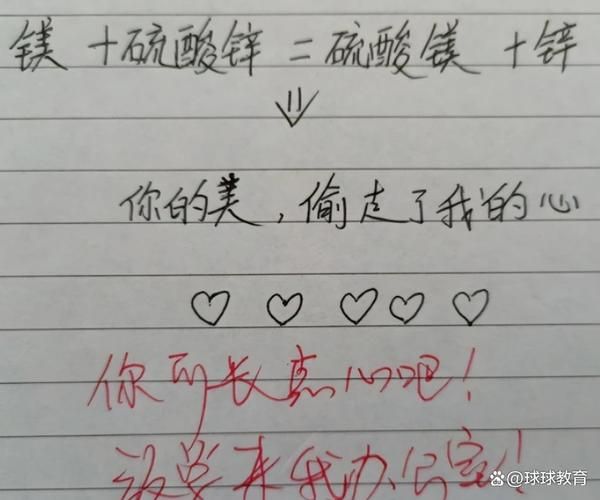 镁 +硫酸锌 = 硫酸镁 +锌
你的美，偷走了我的心
你可长点心吧！
来我办公室！
球球教育